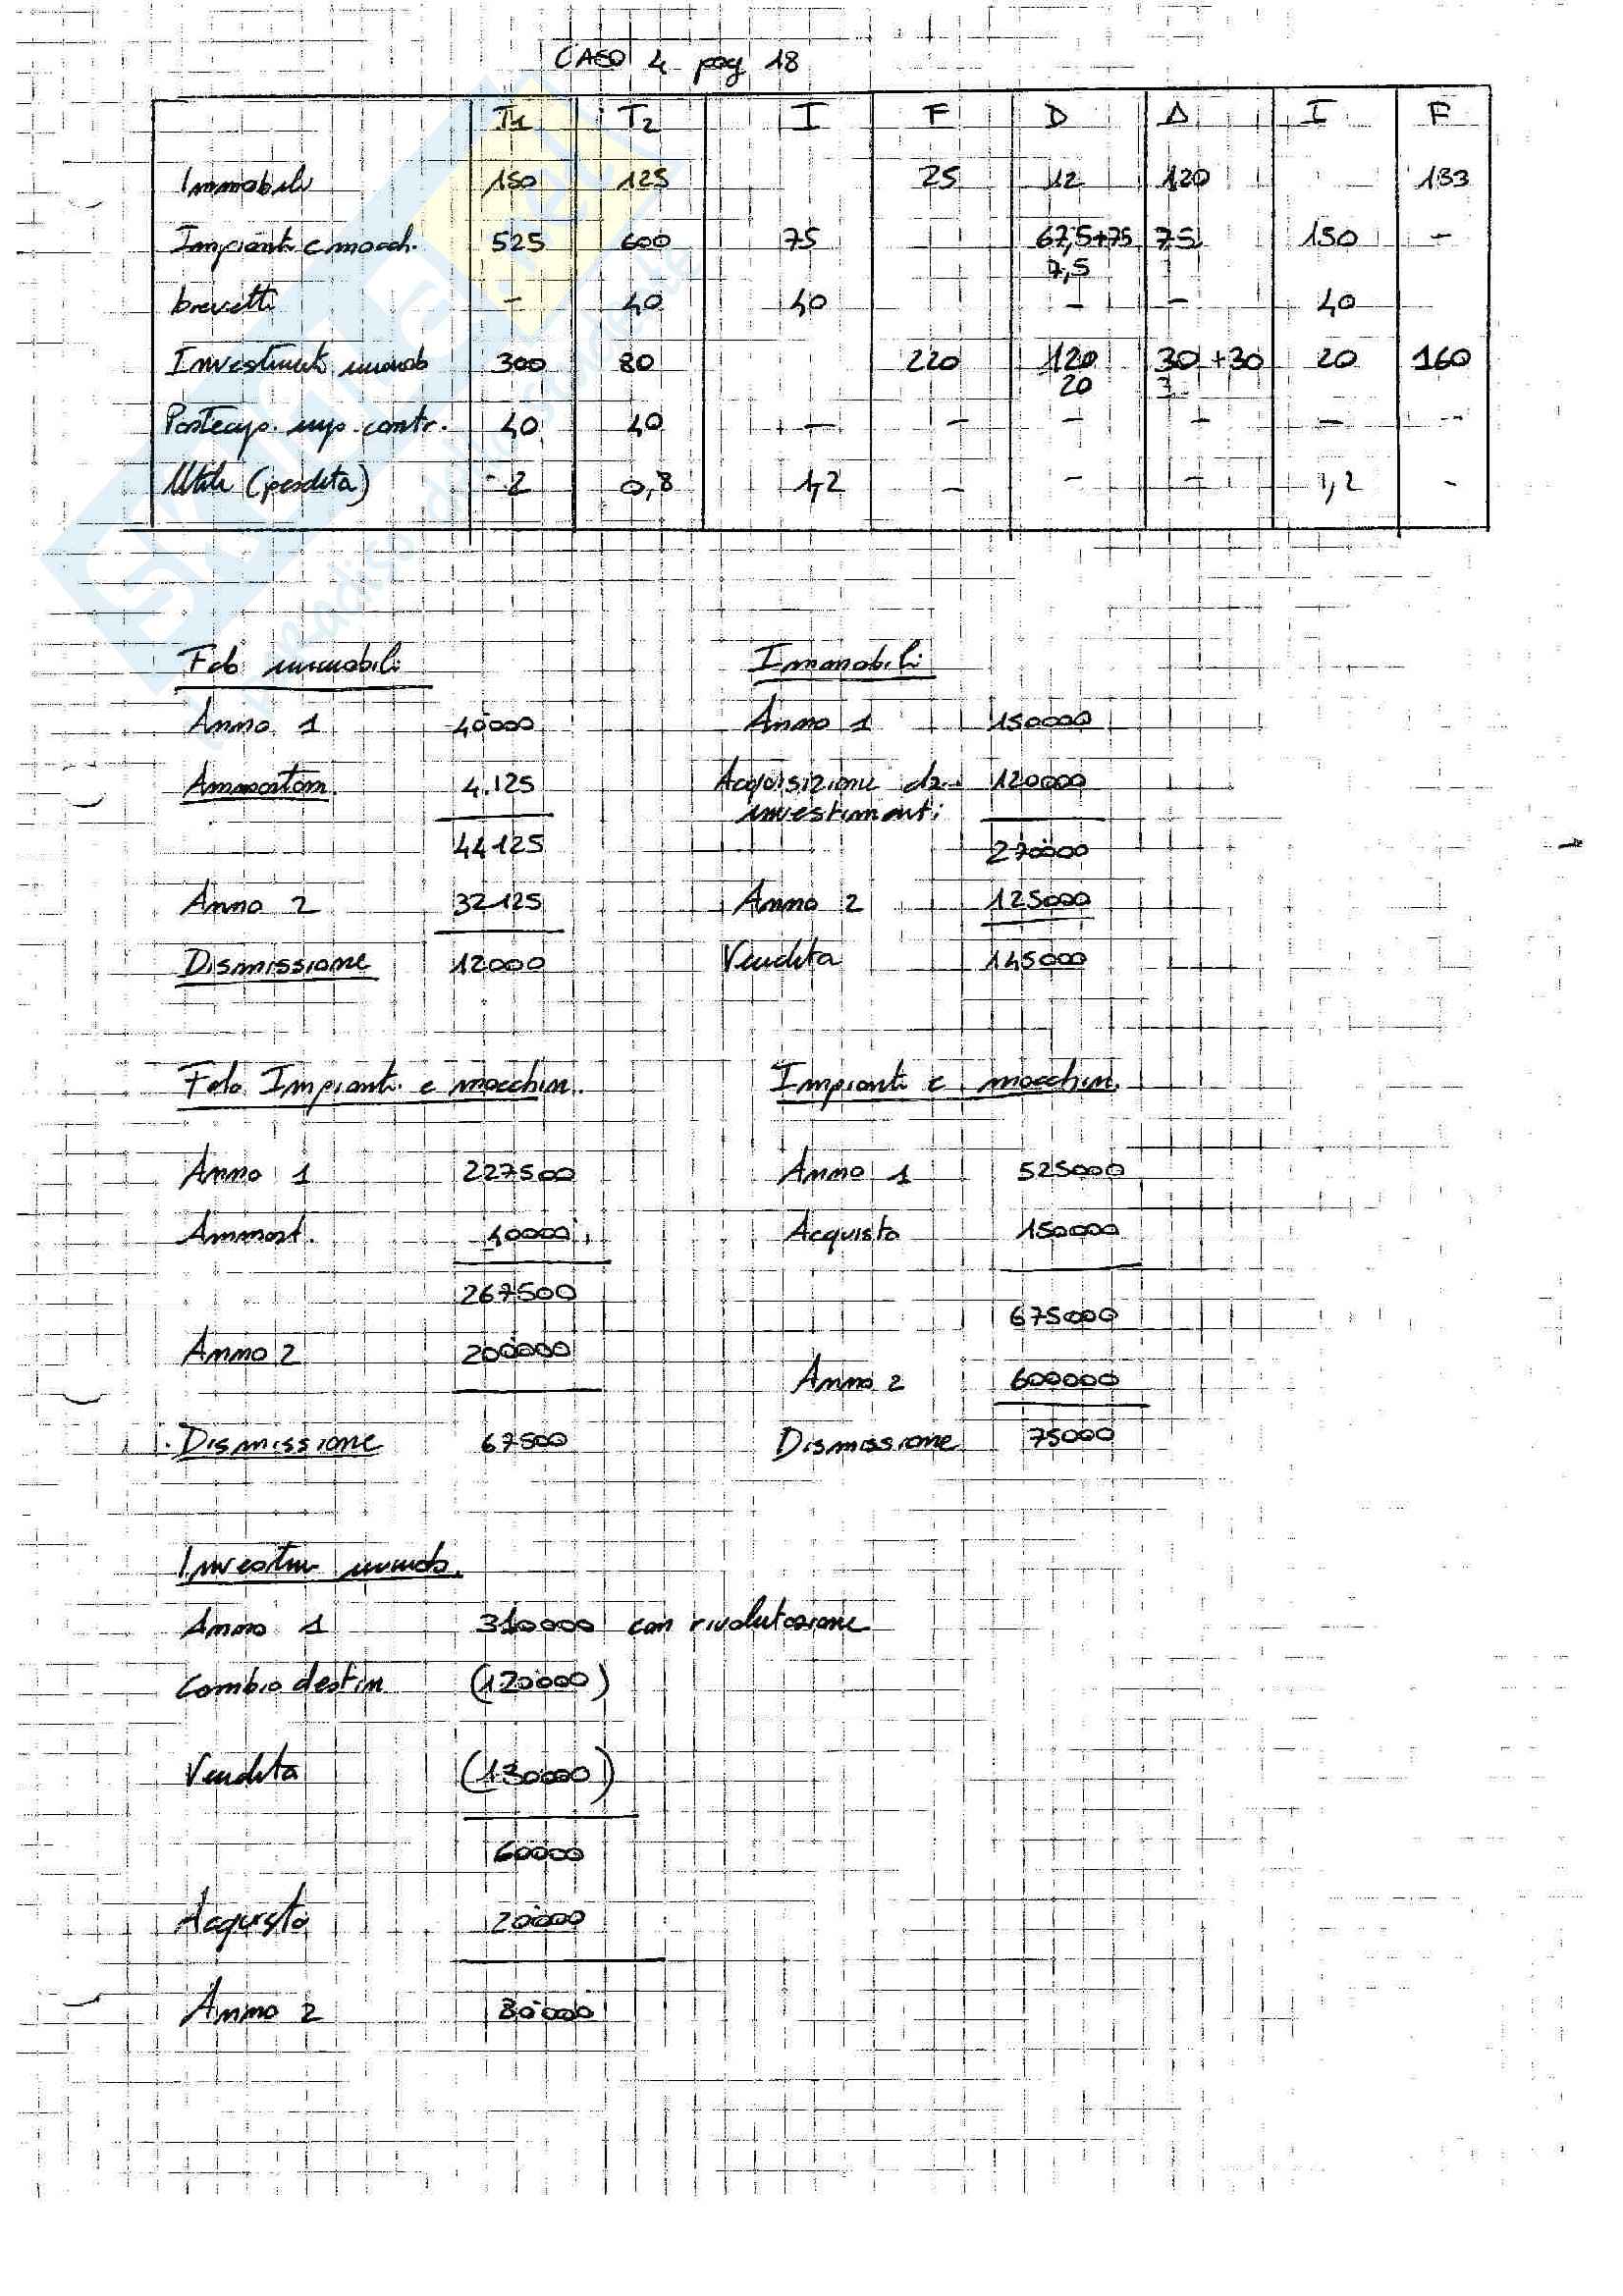 CASO 4 pag 18
T1 T2 I F D Δ I F
Immobili 150 125 25 12 120 133
Impianti e macch. 525 600 75 67,5+75 75 150 -
7,5
brevetti - 40 40 - - 40
Investimenti immob 300 80 220 120 30+30 20 160
20
Partecip. imp. contr. 40 40 - - - - - -
Utile (perdita) -2 0,8 1,2 - - - 1,2 -
Fdo immobili
Anno 1 40000
Ammortam. 4.125
44125
Anno 2 32125
Dismissione 12000
Immobili
Anno 1 150000
Acquisizione da 120000
investimenti
270000
Anno 2 125000
Vendita 145000
Fdo Impianti e macchin.
Anno 1 227500
Ammort. 40000
267500
Anno 2 200000
Dismissione 67500
Impianti e macchin.
Anno 1 525000
Acquisto 150000
675000
Anno 2 600000
Dismissione 75000
Investim immob.
Anno 1 310000 con rivalutazione
Cambio destin (120000)
Vendita (130000)
60000
Acquisto 20000
Anno 2 80000